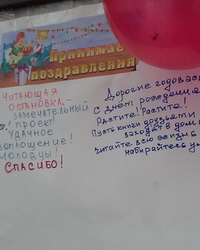 Принимае
поздравления
Читающая
остановка –
замечательный
проект!
Удачное
воплощение!
Молодцы!
Спасибо!
Дорогие
С днём рождения
Растите! Растите!
Пусть книги друзьями
заходят в дома
читайте всю жизнь
набирайтесь у